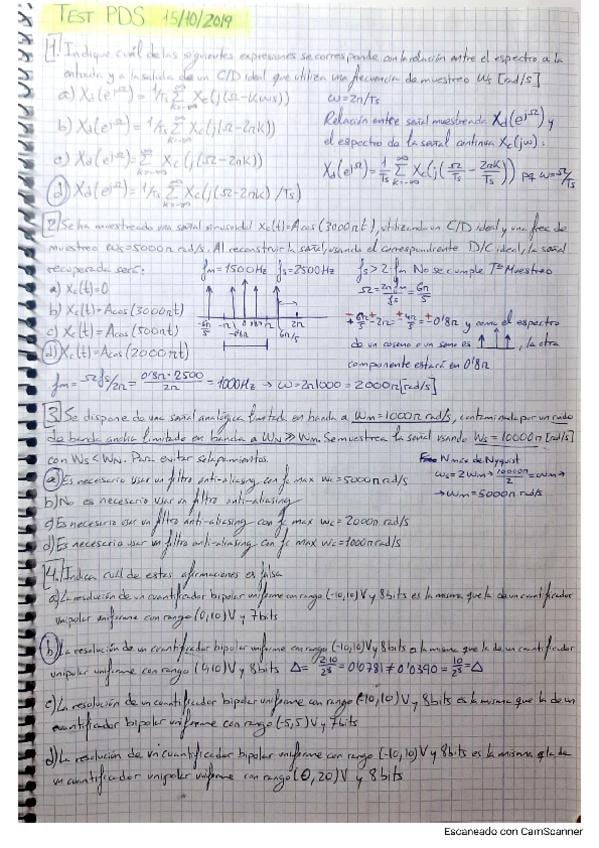 TEST PDS 15/10/2019
1. Indique cuál de las siguientes expresiones se corresponde con la relación entre el espectro a la
entrada y a la salida de un C/D ideal que utiliza una frecuencia de muestreo ws [rad/s]
a) Xd(e^jΩ) = 1/Ts Σ k=-∞ ∞ Xc(j(Ω-kws)) ω=2π/Ts
b) Xd(e^jΩ) = 1/Ts Σ k=-∞ ∞ Xc(j(Ω-2πk)) Relación entre señal muestreada Xd(e^jΩ) y
el espectro de la señal continua Xc(jω):
c) Xd(e^jΩ) = Σ k=-∞ ∞ Xc(j(Ω-2πk)) Xd(e^jΩ) = 1/Ts Σ k=-∞ ∞ Xc(j(Ω/Ts - 2πk/Ts)) pq ω=Ω/Ts
d) Xd(e^jΩ) = 1/Ts Σ k=-∞ ∞ Xc(j(Ω-2πk)/Ts)
2. Se ha muestreado una señal sinusoidal Xc(t)=Acos(3000πt), utilizando un C/D ideal y una frec de
muestreo ws=5000π rad/s. Al reconstruir la señal, usando el correspondiente D/C ideal, la señal
recuperada será: fm=1500Hz fs=2500Hz fs>2·fm No se cumple Tª Muestreo
a) Xc(t)=0 Ω=2πfm/fs=6π/5
b) Xc(t)=Acos(3000πt)
c) Xc(t)=Acos(500πt) y como el espectro
d) Xc(t)=Acos(2000πt) de un coseno o un seno es , la otra
componente estará en 0'8π
fm=Ωfs/2π=0'8π·2500/2π=1000Hz → ω=2π1000=2000π[rad/s]
3. Se dispone de una señal analógica limitada en banda a Wm=1000π rad/s, contaminada por un ruido
de banda ancha limitado en banda a WN≫Wm. Se muestrea la señal usando Ws=10000π [rad/s]
con Ws<WN. Para evitar solapamientos.
a) Es necesario usar un filtro anti-aliasing con fc max wc=5000π rad/s
b) No es necesario usar un filtro anti-aliasing
c) Es necesario usar un filtro anti-aliasing con fc max wc=2000π rad/s
d) Es necesario usar un filtro anti-aliasing con fc max wc=1000π rad/s
→ wm=5000π rad/s
4. Indica cuál de estas afirmaciones es falsa
a) La resolución de un cuantificador bipolar uniforme con rango (-10,10)V y 8bits es la misma que la de un cuantificador
unipolar uniforme con rango (0,10)V y 7bits
b) La resolución de un cuantificador bipolar uniforme con rango (-10,10)V y 8bits es la misma que la de un cuantificador
unipolar uniforme con rango 10)V y 8 bits Δ=2·10/2^8=0'0781≠0'0390=10/2^8=Δ
c) La resolución de un cuantificador bipolar uniforme con rango (-10,10)V y 8bits es la misma que la de un
cuantificador bipolar uniforme con rango (-5,5)V y 7bits
d) La resolución de un cuantificador bipolar uniforme con rango (-10,10)V y 8bits es la misma q la de
un cuantificador unipolar uniforme con rango (0,20)V y 8bits
Escaneado con CamScanner